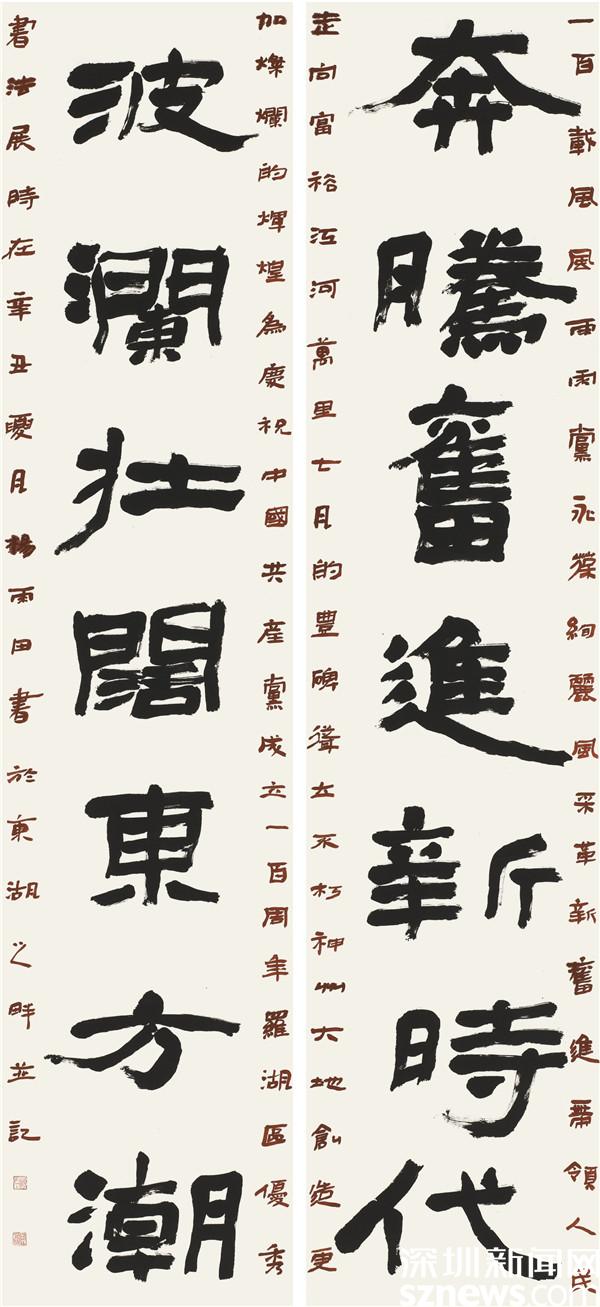 一百載風風雨雨黨永葆絢麗風采革新奮進帶領人民
奔騰奮進新時代
走向富裕江河萬里七月的豐碑聳立不朽神州大地創造更
加燦爛的輝煌為慶祝中國共產黨成立一百周年羅湖區優秀
波瀾壯闊東方潮
書法展時在辛丑夏月楊雨田書於東湖之畔並記
深圳新闻网
sznews.com